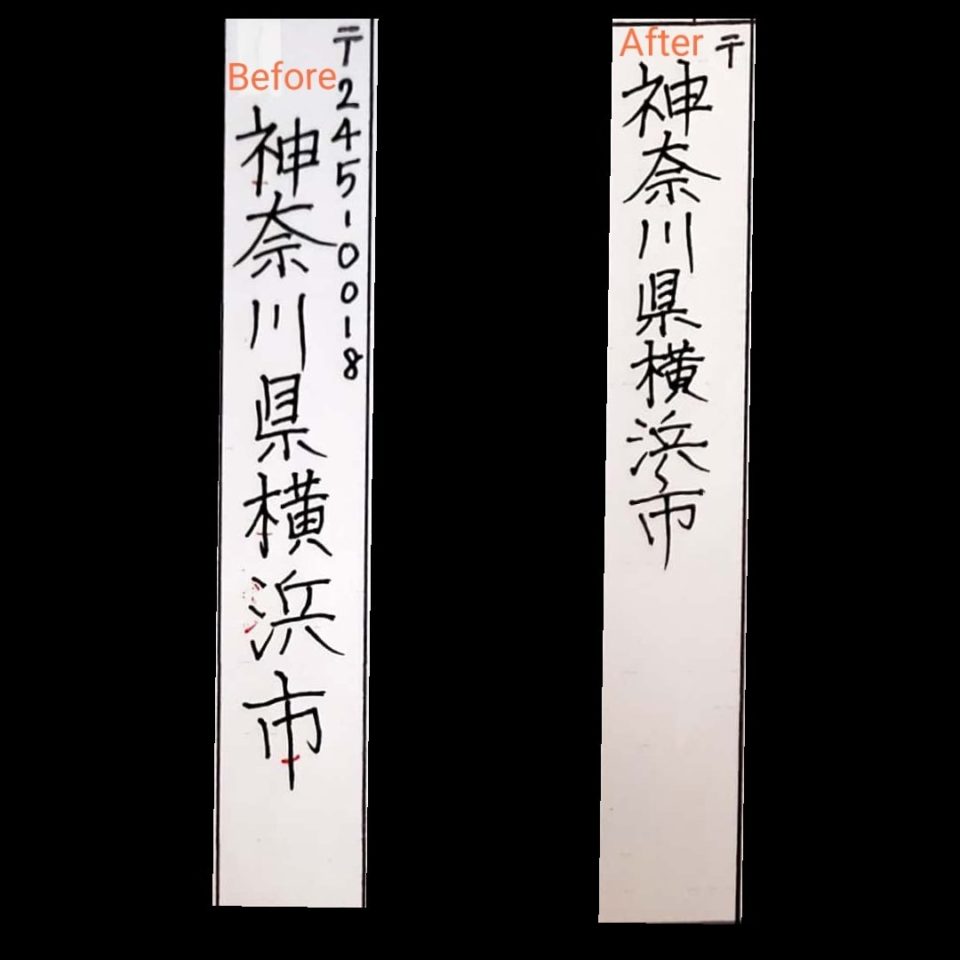 Before
〒245-0018
神奈川県横浜市
After
〒
神奈川県横浜市